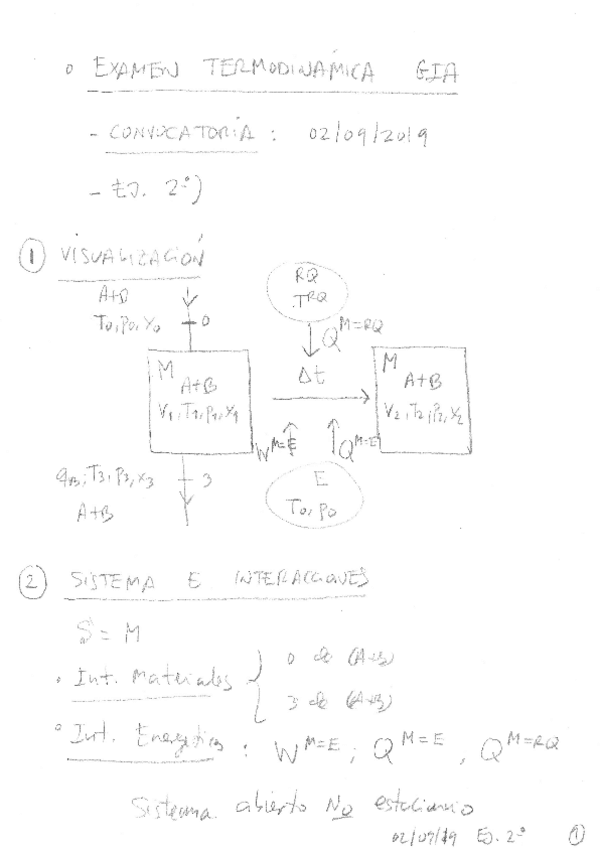 o EXAMEN TERMODINÁMICA GIA
- CONVOCATORIA : 02/09/2019
- EJ. 2º)
① VISUALIZACIÓN
A+B
T0, P0, X0
0
RQ
TRQ
Q^M=RQ
M
A+B
V1, T1, P1, X1
Δt
M
A+B
V2, T2, P2, X2
W^M=E
Q^M=E
T3, P3, X3
3
A+B
E
T0, P0
② SISTEMA E INTERACCIONES
S = M
• Int. Materiales
0 de (A+B)
3 de (A+B)
o Int. Energéticas : W^M=E ; Q^M=E , Q^M=RQ
Sistema abierto NO estacionario
02/09/19 EJ. 2º ①